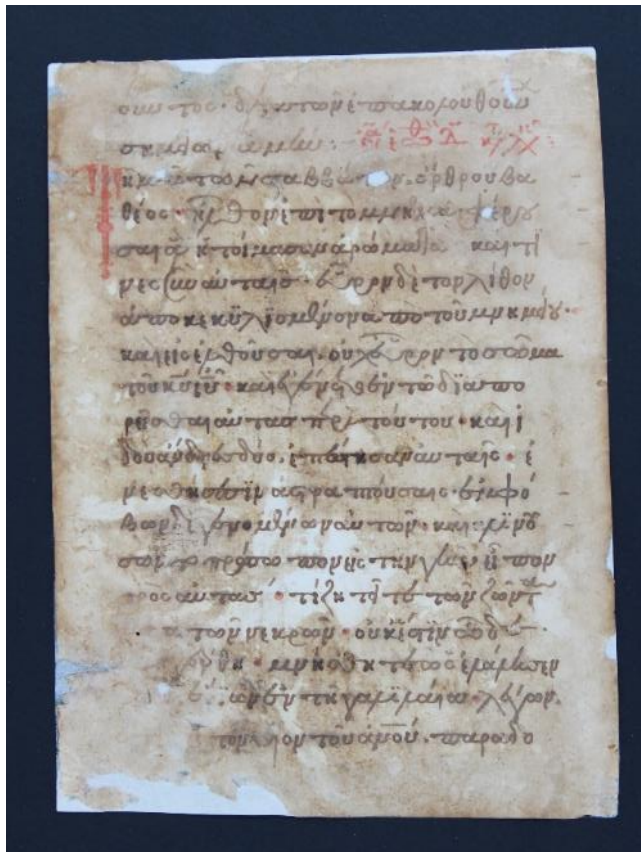 ουντος· διὰ τῶν ἐπακολουθούν
σημείων· ἀμήν:
τῆ μιᾶ τῶν σαββάτων· ὄρθρου βα
θέος· ἦλθον ἐπὶ τὸ μνῆμα φέρου
σαι ἃ ἡτοίμασαν ἀρώματα καί τι
νες σὺν αὐταῖς· εὗρον δὲ τὸν λίθον
ἀποκεκυλισμένον ἀπὸ τοῦ μνημείου·
καὶ εἰσελθοῦσαι· οὐχ εὗρον τὸ σῶμα
τοῦ κυ ιυ· καὶ ἐγένετο ἐν τῶ διαπο
ρεῖσθαι αὐτὰς περὶ τούτου· καὶ ἰ
δοὺ ἄνδρες δύο, ἐπέστησαν αὐταῖς· ἐ
ν ἐσθήσεσιν ἀστραπτούσαις· ἐμφό
βων δὲ γενομένων αὐτῶν· καὶ κλινου
σῶν τὸ πρόσωπον εἰς τὴν γῆν· εἶπον
πρὸς αὐτάς· τί ζητεῖτε τὸν ζῶντα
τῶν νεκρῶν· οὐκ ἔστιν ὧδε
μνήσθητε ὡς ἐλάλησεν
ὢν ἐν τῆ γαλιλαία· λέγων·
τὸν υἱὸν τοῦ ανου· παραδο